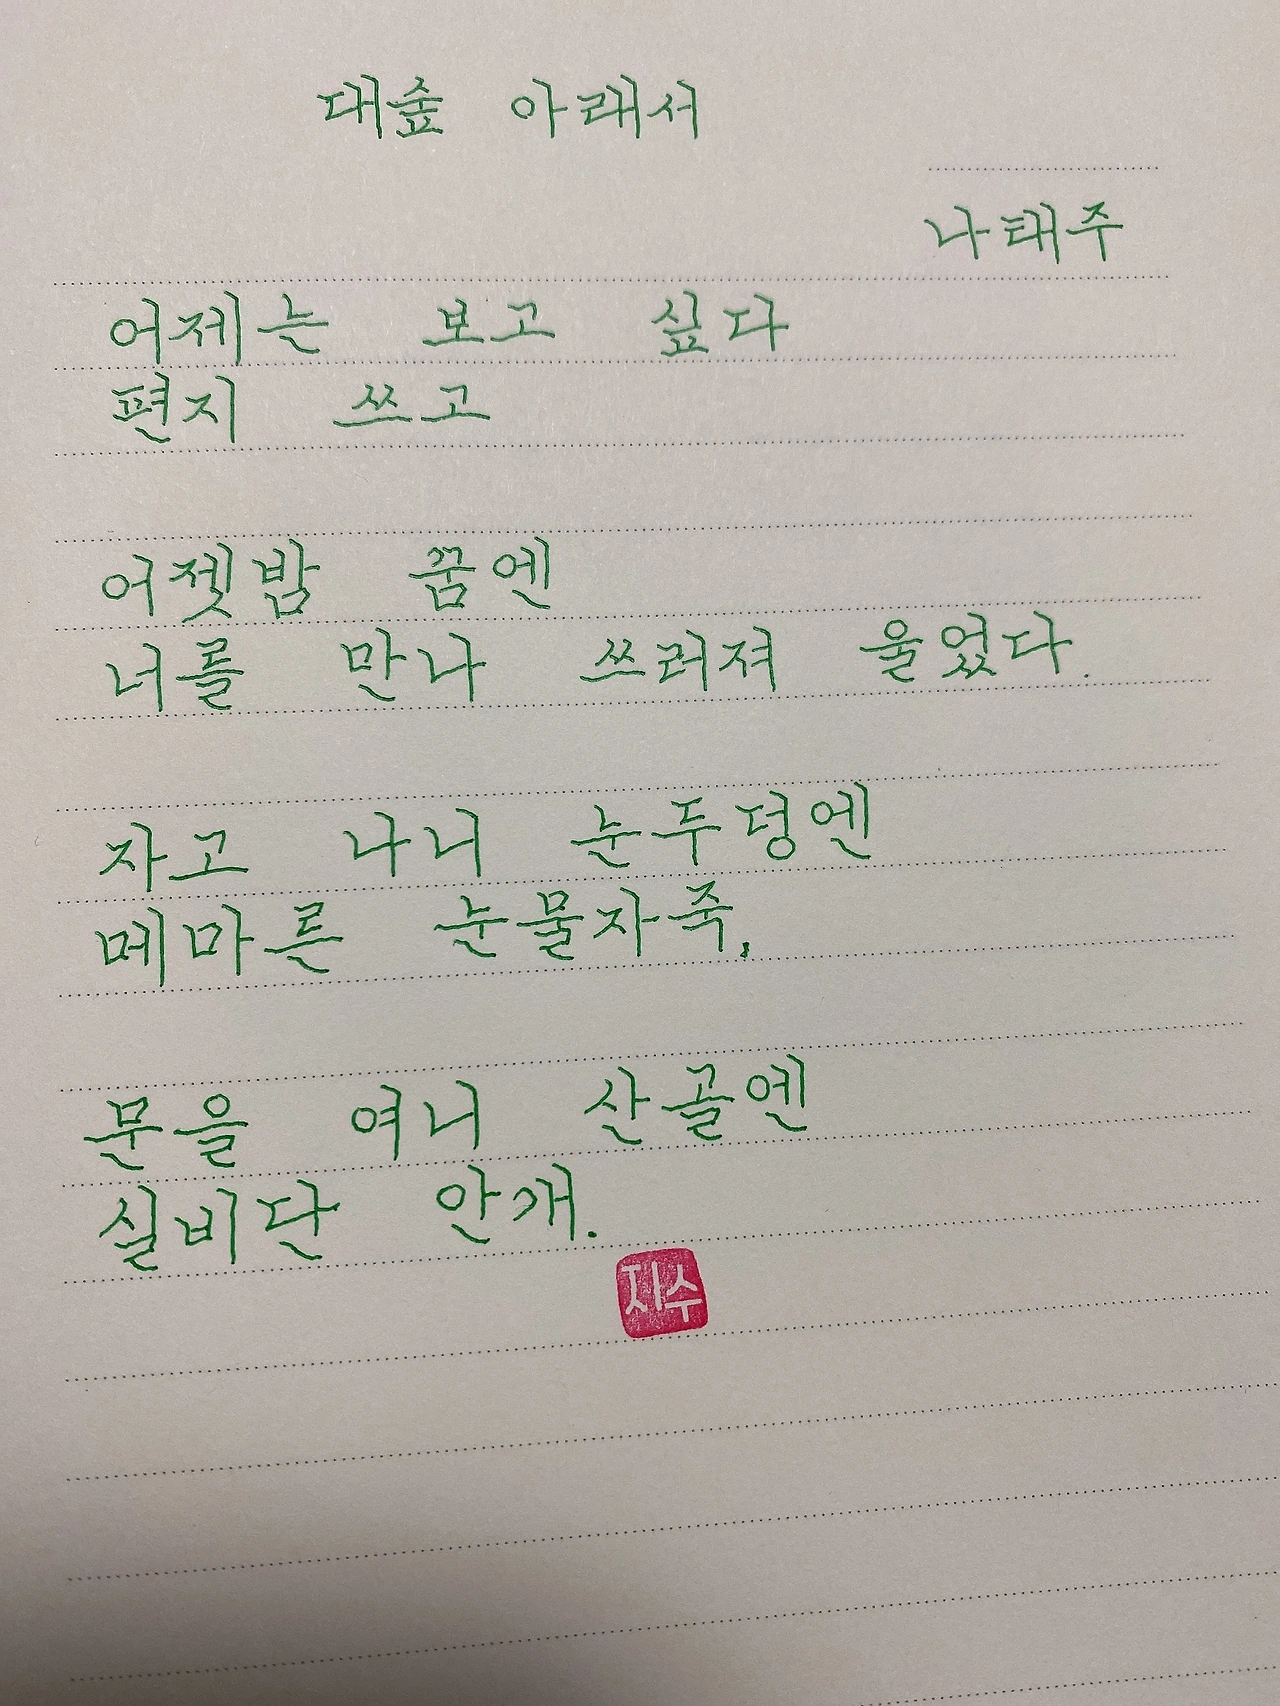 대숲 아래서
나태주
어제는 보고 싶다
편지 쓰고
어젯밤 꿈엔
너를 만나 쓰러져 울었다.
자고 나니 눈두덩엔
메마른 눈물자죽,
문을 여니 산골엔
실비단 안개.
지수